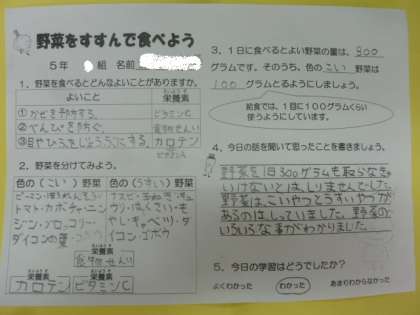 野菜をすすんで食べよう
５年 組 名前
１、野菜を食べるとどんなよいことがありますか。
よいこと
えいようそ
栄養素
①かぜを予防する
ビタミンC
②べんぴを防ぐ。
食物せんい
③目やひふをじょうぶにする
カロテン
ビタミンA
２、野菜を分けてみよう。
色の（こい）野菜
色の（うすい）野菜
ピーマン・ほうれんそう・
トマト・カボチャ・ニン
ジン・ブロッコリー・
ダイコンの葉
ナスビ・玉ねぎ・
ウリ・はくさい・も
やし・キャベツ・ダ
イコン・ゴボウ
えいようそ
栄養素
食物せんい
えいようそ
栄養素
カロテン
ビタミンC
３、１日に食べるとよい野菜の量は、300
グラムです。そのうち、色のこい野菜は
100グラムとるようにしましょう。
給食では、１日に１００グラムくらい
使うようにしています。
４、今日の話を聞いて思ったことを書きましょう。
野菜を1日300グラムも取らなきゃ
いけないとは、しりませんでした。
野菜は、こいやつとうすいやつが
あるのはしっていました。野菜の
いろいろな事がわかりました。
５、今日の学習はどうでしたか？
よくわかった
わかった
あまりわからなかった